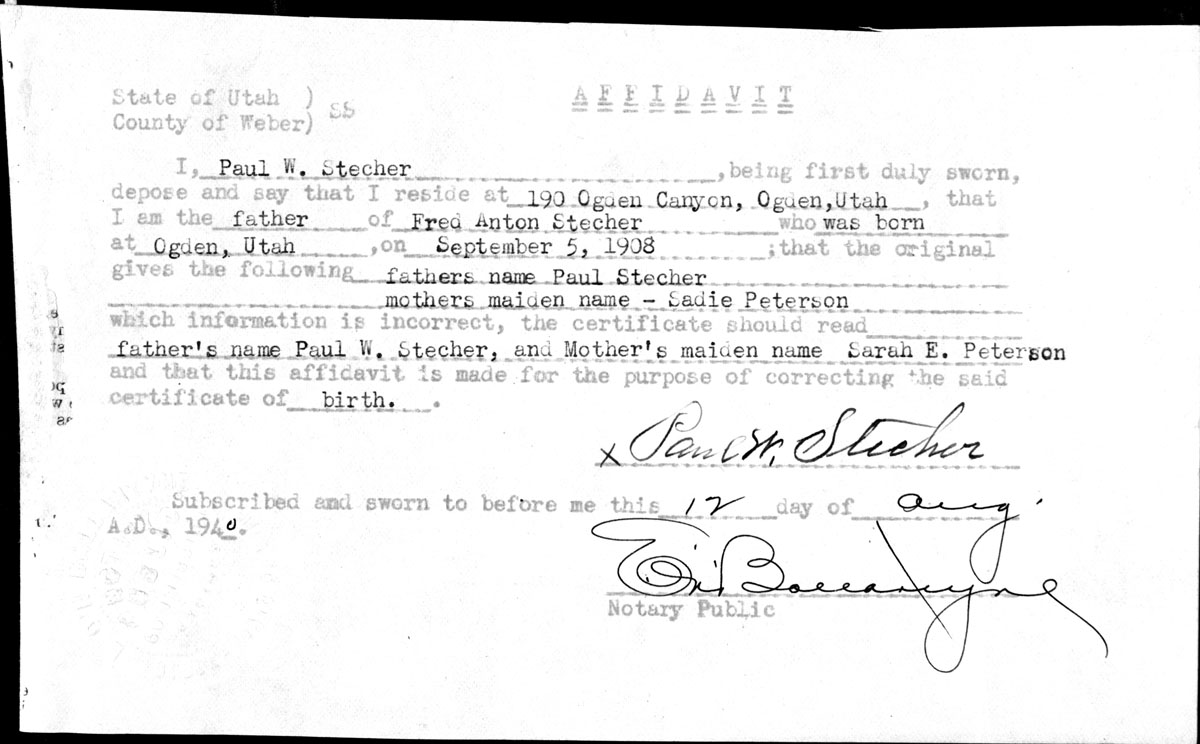 State of Utah ) SS AFFIDAVIT
County of Weber)
I, Paul W. Stecher ,being first duly sworn,
depose and say that I reside at 190 Ogden Canyon, Ogden,Utah , that
I am the father of Fred Anton Stecher who was born
at Ogden, Utah ,on September 5, 1908 ;that the original
gives the following fathers name Paul Stecher
mothers maiden name - Sadie Peterson
which information is incorrect, the certificate should read
father's name Paul W. Stecher, and Mother's maiden name Sarah E. Peterson
and that this affidavit is made for the purpose of correcting the said
certificate of birth. .
x Paul W. Stecher
Subscribed and sworn to before me this 12 day of Aug.
A.D., 1940.
Notary Public